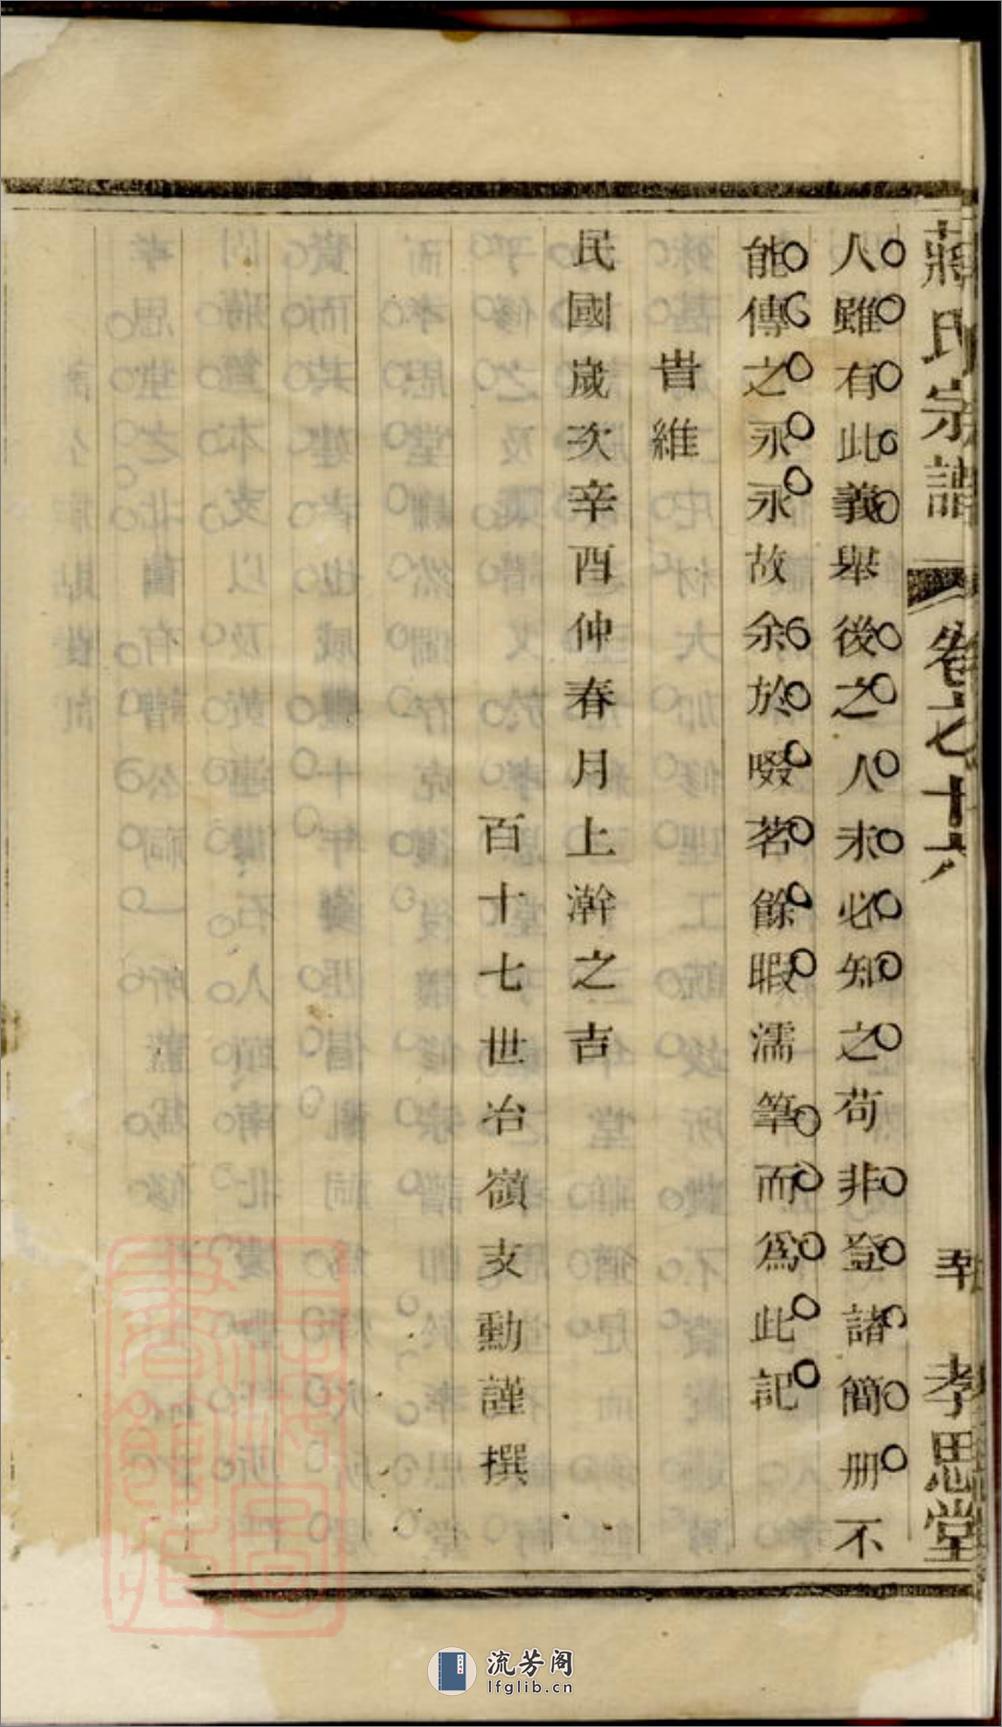 蔣氏宗譜 卷之十六 孝思堂
人雖有此義舉後之人未必知之苟非登諸簡册不
能傳之永永故余於啜茗餘暇濡筆而爲此記
旹維
民國歲次辛酉仲春月上澣之吉
百十七世冶嶺支勳謹撰
流芳阁
lfglib.cn